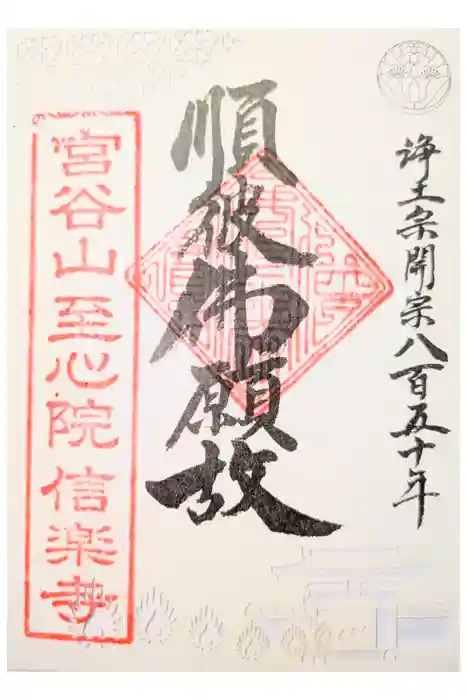 浄土宗開宗八百五十年
順彼佛願故
宮谷山至心院信楽寺